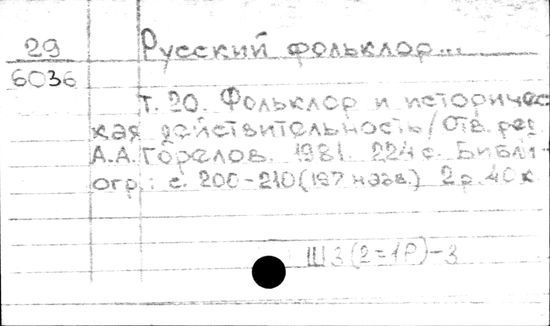 29 Русский фольклор...
6036
т. 20. Фольклор и историчес
кая действительность/Отв. ред.
А.А. Горелов. 1981. 224 с. Библи-
огр.: с. 200-210 (197 назв.) 2р. 40к
Ш3(2=1Р)-3